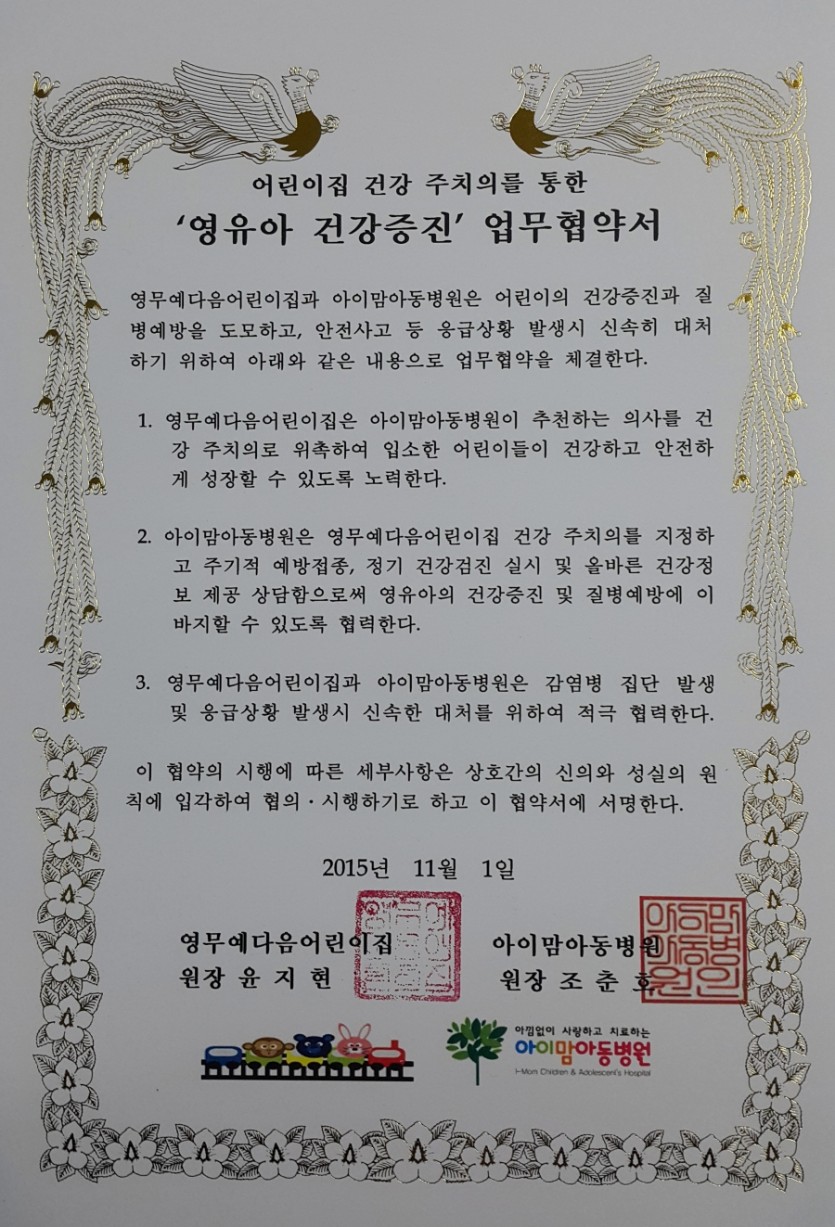 어린이집 건강 주치의를 통한
‘영유아 건강증진’ 업무협약서
영무예다음어린이집과 아이맘아동병원은 어린이의 건강증진과 질
병예방을 도모하고, 안전사고 등 응급상황 발생시 신속히 대처
하기 위하여 아래와 같은 내용으로 업무협약을 체결한다.
1. 영무예다음어린이집은 아이맘아동병원이 추천하는 의사를 건
강 주치의로 위촉하여 입소한 어린이들이 건강하고 안전하
게 성장할 수 있도록 노력한다.
2. 아이맘아동병원은 영무예다음어린이집 건강 주치의를 지정하
고 주기적 예방접종, 정기 건강검진 실시 및 올바른 건강정
보 제공 상담함으로써 영유아의 건강증진 및 질병예방에 이
바지할 수 있도록 협력한다.
3. 영무예다음어린이집과 아이맘아동병원은 감염병 집단 발생
및 응급상황 발생시 신속한 대처를 위하여 적극 협력한다.
이 협약의 시행에 따른 세부사항은 상호간의 신의와 성실의 원
칙에 입각하여 협의・시행하기로 하고 이 협약서에 서명한다.
2015년 11월 1일
영무예다음어린이집
원장 윤 지 현
아이맘아동병원
원장 조 춘 호
아이맘
아동병
원인
아낌없이 사랑하고 치료하는
아이맘아동병원
i-Mom Children & Adolescent's Hospital